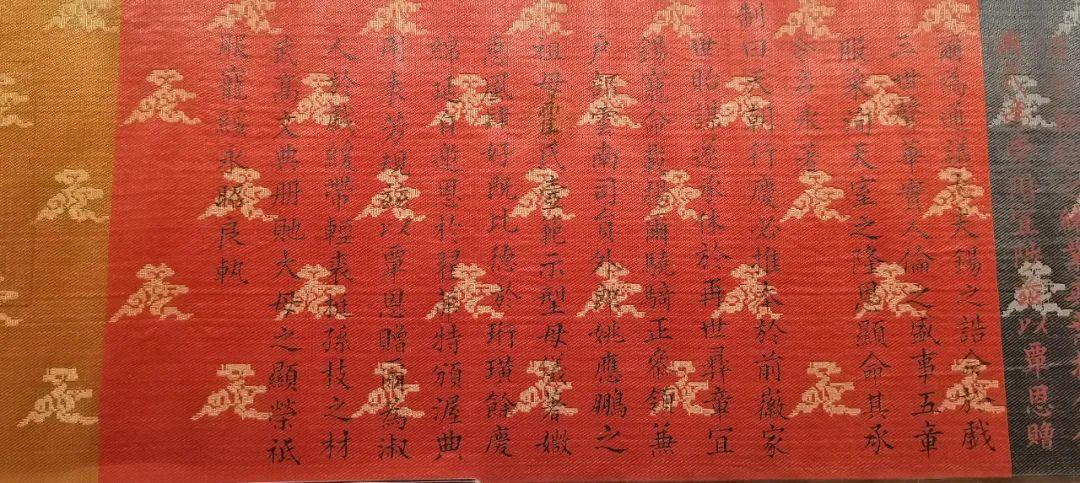 以覃恩贈
爾為通議大夫錫之誥命於戲
三世聲華實人倫之盛事五章
服采荷天室之隆恩顯命其承
令名永著
制曰天朝行慶必推本於前徽家
世貽謀遂承休於再世彞章宜
錫寵命載揚爾驍騎正叅領兼
戶部雲南司員外郎姚應鵬之
祖母霍氏壼範示型母儀著媺
惠風肆好既比德於珩璜餘慶
綿延自邀恩於翟茀特頒渥典
用表芳規茲以覃恩贈爾為淑
人於戲緩帶輕裘挺孫枝之材
武高文典冊貤大母之顯榮祇
服寵綏永昭良軌